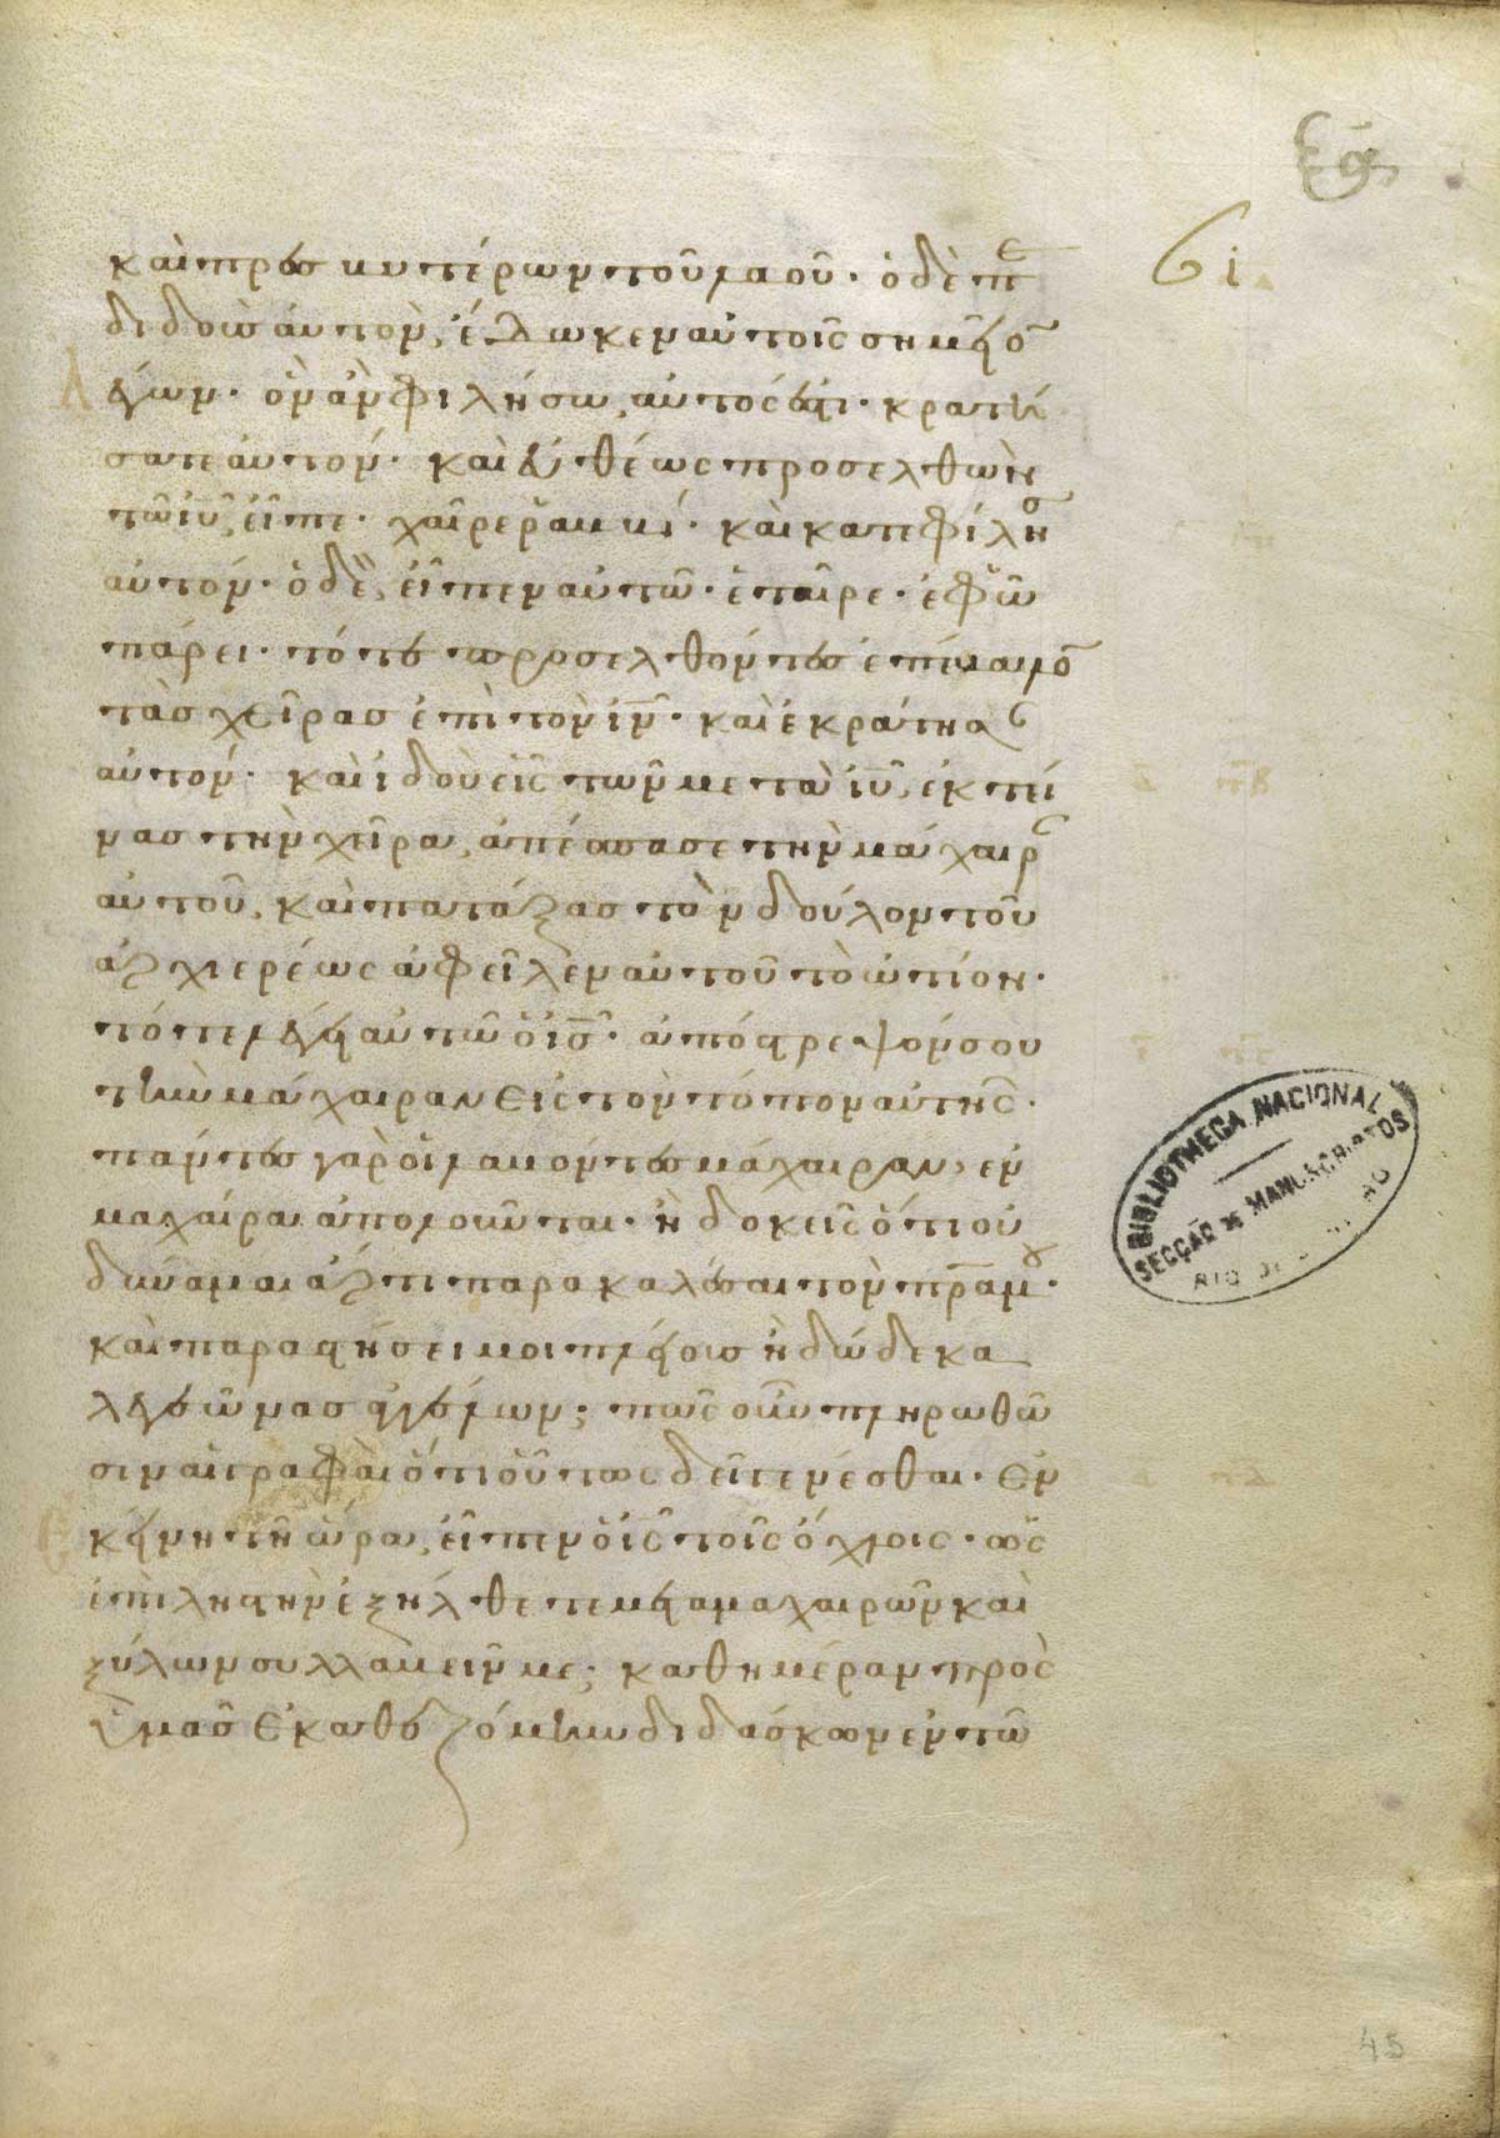 61.
καὶ πρεσβυτέρων τοῦ λαοῦ· ὁ δὲ πα
διδοὺς αὐτὸν, ἔδωκεν αὐτοῖς σημεῖο
λέγων· ὃν ἂν φιλήσω, αὐτός ἐστι· κρατή
σατε αὐτόν· καὶ εὐθέως προσελθὼν
τῶ ἰῦ, εἶπε· χαῖρε ῥαββί· καὶ κατεφίλησ
αὐτόν· ὁ δὲ ις εἶπεν αὐτῶ· ἑταῖρε· ἐφ ὧ
πάρει· τότε προσελθόντες ἐπέβαλο
τὰς χεῖρας ἐπὶ τὸν ιν· καὶ ἐκράτησα
αὐτόν· καὶ ἰδοὺ εἷς τῶν μετὰ ἰῦ, ἐκτεί
νας τὴν χεῖρα, ἀπέσπασε τὴν μάχαιρ
αὐτοῦ, καὶ πατάξας τὸν δοῦλον τοῦ
ἀρχιερέως ἀφεῖλεν αὐτοῦ τὸ ὠτίον·
τότε λέγει αὐτῶ ὁ ις· ἀπόστρεψόν σου
τὴν μάχαιραν εἰς τὸν τόπον αὐτῆς·
πάντες γὰρ οἱ λαβόντες μάχαιραν, ἐν
μαχαίρα ἀπολοῦνται· ἢ δοκεῖς ὅτι οὐ
δύναμαι ἄρτι παρακαλέσαι τὸν πρα μου·
καὶ παραστήσει μοι πλείους ἢ δώδεκα
λεγεῶνας ἀγγέλων; πῶς οὖν πληρωθῶ
σιν αἱ γραφαὶ ὅτι οὕτως δεῖ γενέσθαι· Ἐν
ἐκείνη τῆ ὥρα, εἶπεν ὁ ις τοῖς ὄχλοις· ὡς
ἐπὶ ληστὴν ἐξήλθετε μετὰ μαχαιρῶν καὶ
ξύλων συλλαβεῖν με; καθημέραν πρὸς
ὑμᾶς ἐκαθεζόμην διδάσκων ἐν τῶ
BIBLIOTHECA NACIONAL
SECÇÃO DE MANUSCRIPTOS
45